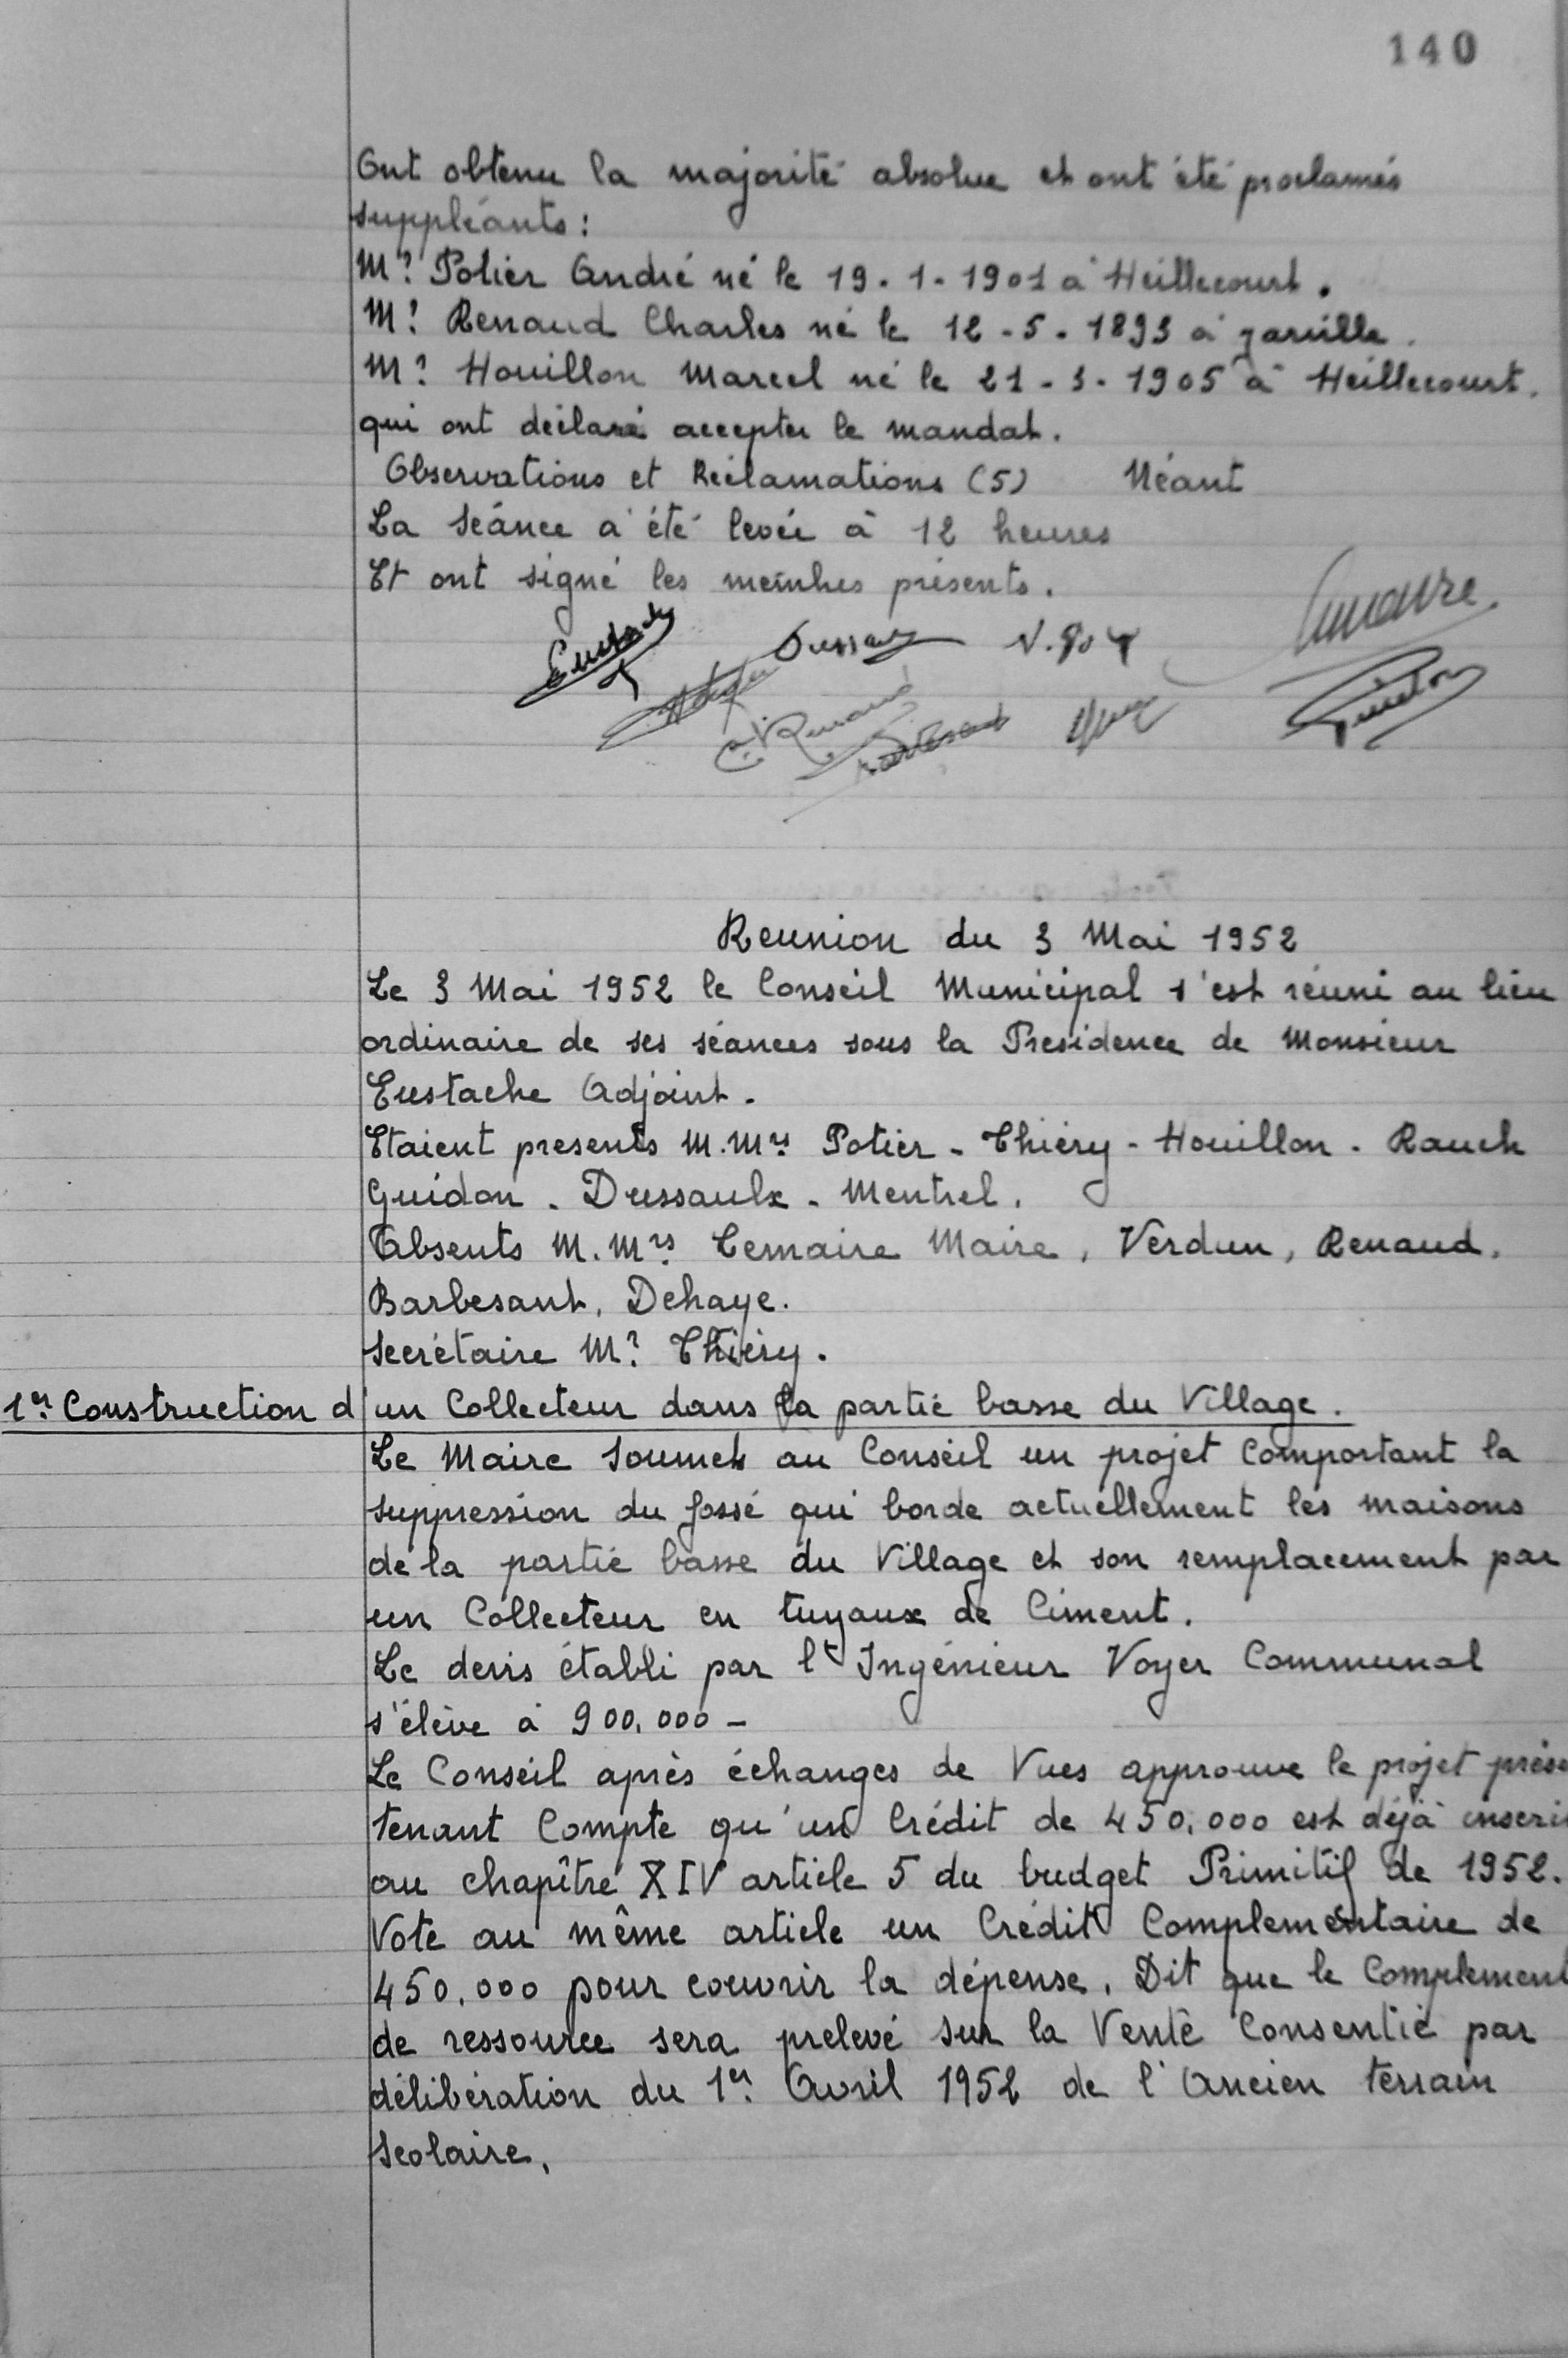 140
Ont obtenu la majorité absolue et ont été proclamés
suppléants :
Mr Potier André né le 19.1.1901 à Heillecourt.
Mr Renaud Charles né le 12-5-1893 à Jarville.
Mr Houillon Marcel né le 21-3-1905 à Heillecourt.
qui ont déclaré accepter le mandat.
Observations et Réclamations (5) Néant
La séance a été levée à 12 heures
Et ont signé les membres présents.
Reunion du 3 Mai 1952
Le 3 Mai 1952 le Conseil Municipal s'est réuni au lieu
ordinaire de ses séances sous la Présidence de Monsieur
Eustache Adjoint.
Etaient presents M.Mrs Potier - Thiéry - Houillon - Rauch
Guidon - Dussaulx - Mentrel.
Absents M.Mrs Lemaire Maire, Verdun, Renaud,
Barbesant, Dehaye.
Secrétaire Mr Thiéry.
1er Construction d'un Collecteur dans la partie basse du Village.
Le Maire soumet au Conseil un projet comportant la
suppression du fossé qui borde actuellement les maisons
de la partie basse du Village et son remplacement par
un Collecteur en tuyaux de Ciment.
Le devis établi par l'Ingénieur Voyer Communal
s'élève à 900.000 -
Le Conseil après échanges de Vues approuve le projet prése
tenant Compte qu'un Crédit de 450.000 est déjà inscri
au chapître XIV article 5 du budget Primitif de 1952.
Vote au même article un Crédit Complementaire de
450.000 pour couvrir la dépense. Dit que le Complement
de ressource sera prelevé sur la Vente Consentie par
délibération du 1er Avril 1952 de l'Ancien terrain
Scolaire.